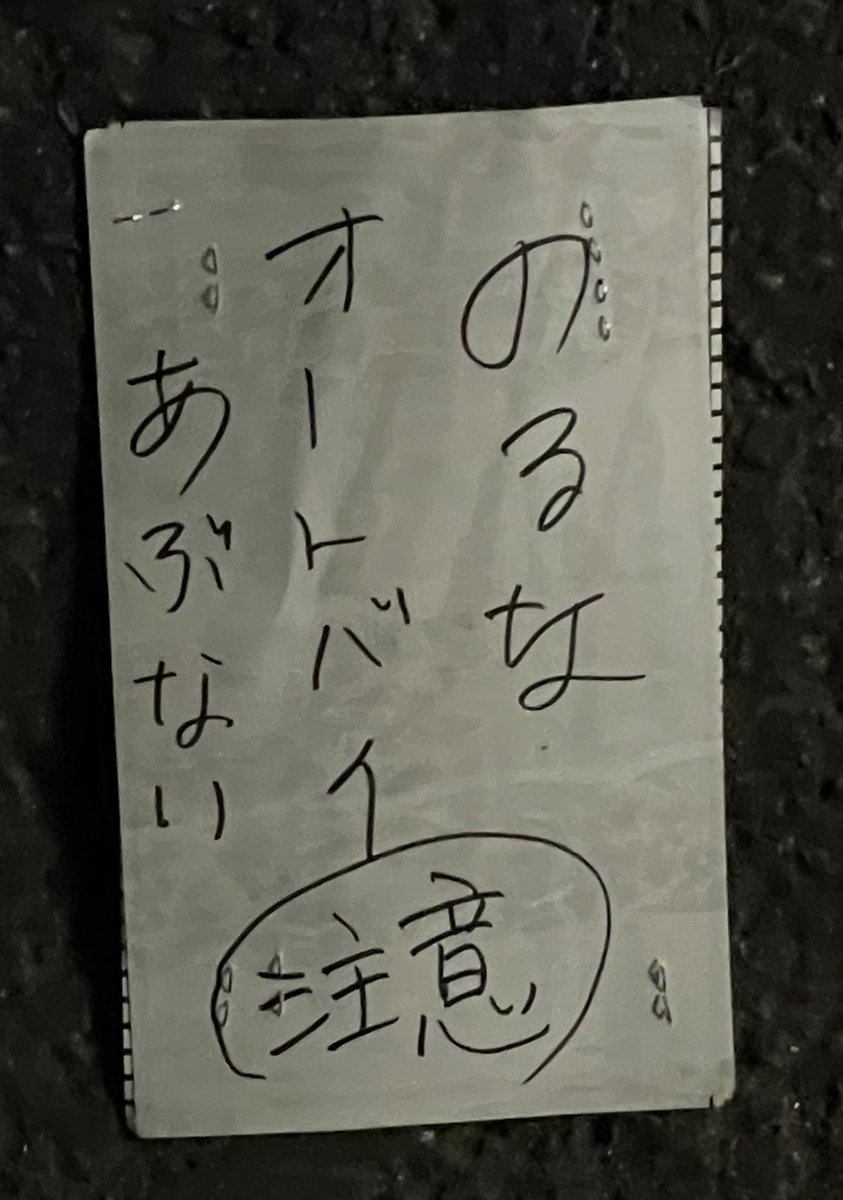 のるな
オートバイ
あぶない
注意